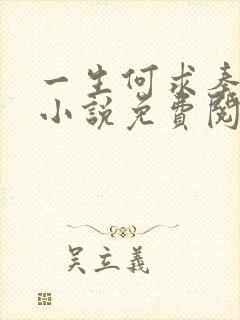 一生何求秦
小說免費閱
吴立義